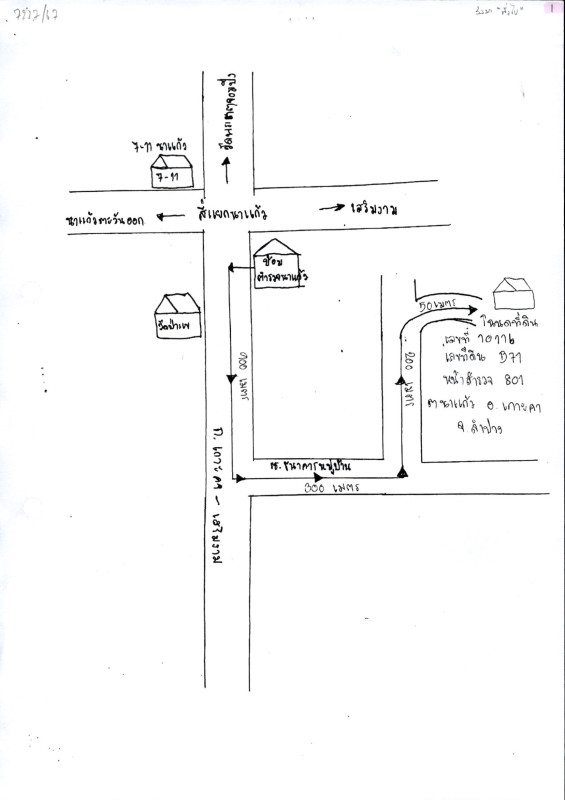 1
7-11 นาแก้ว
7-11
นาแก้วตะวันออก
สี่แยกนาแก้ว
เสริมงาม
ป้อม
ตำรวจนาแก้ว
วัดป่าเพ
900 เมตร
ถ. เกาะคา - เสริมงาม
ซ. ธนาคารหมู่บ้าน
300 เมตร
200 เมตร
50 เมตร
โฉนดที่ดิน
เลขที่
เลขที่ดิน
หน้าสำรวจ 801
ต นาแก้ว อ. เกาะคา
จ. ลำปาง